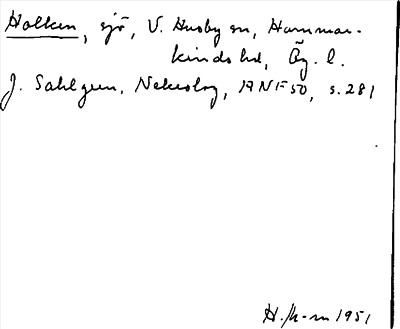 Holken, sjö, V. Husby sn, Hammar-
kinds hd, Ög. l.
J. Sahlgren, Nekrolog, ANF 50, s. 281
H. 1951